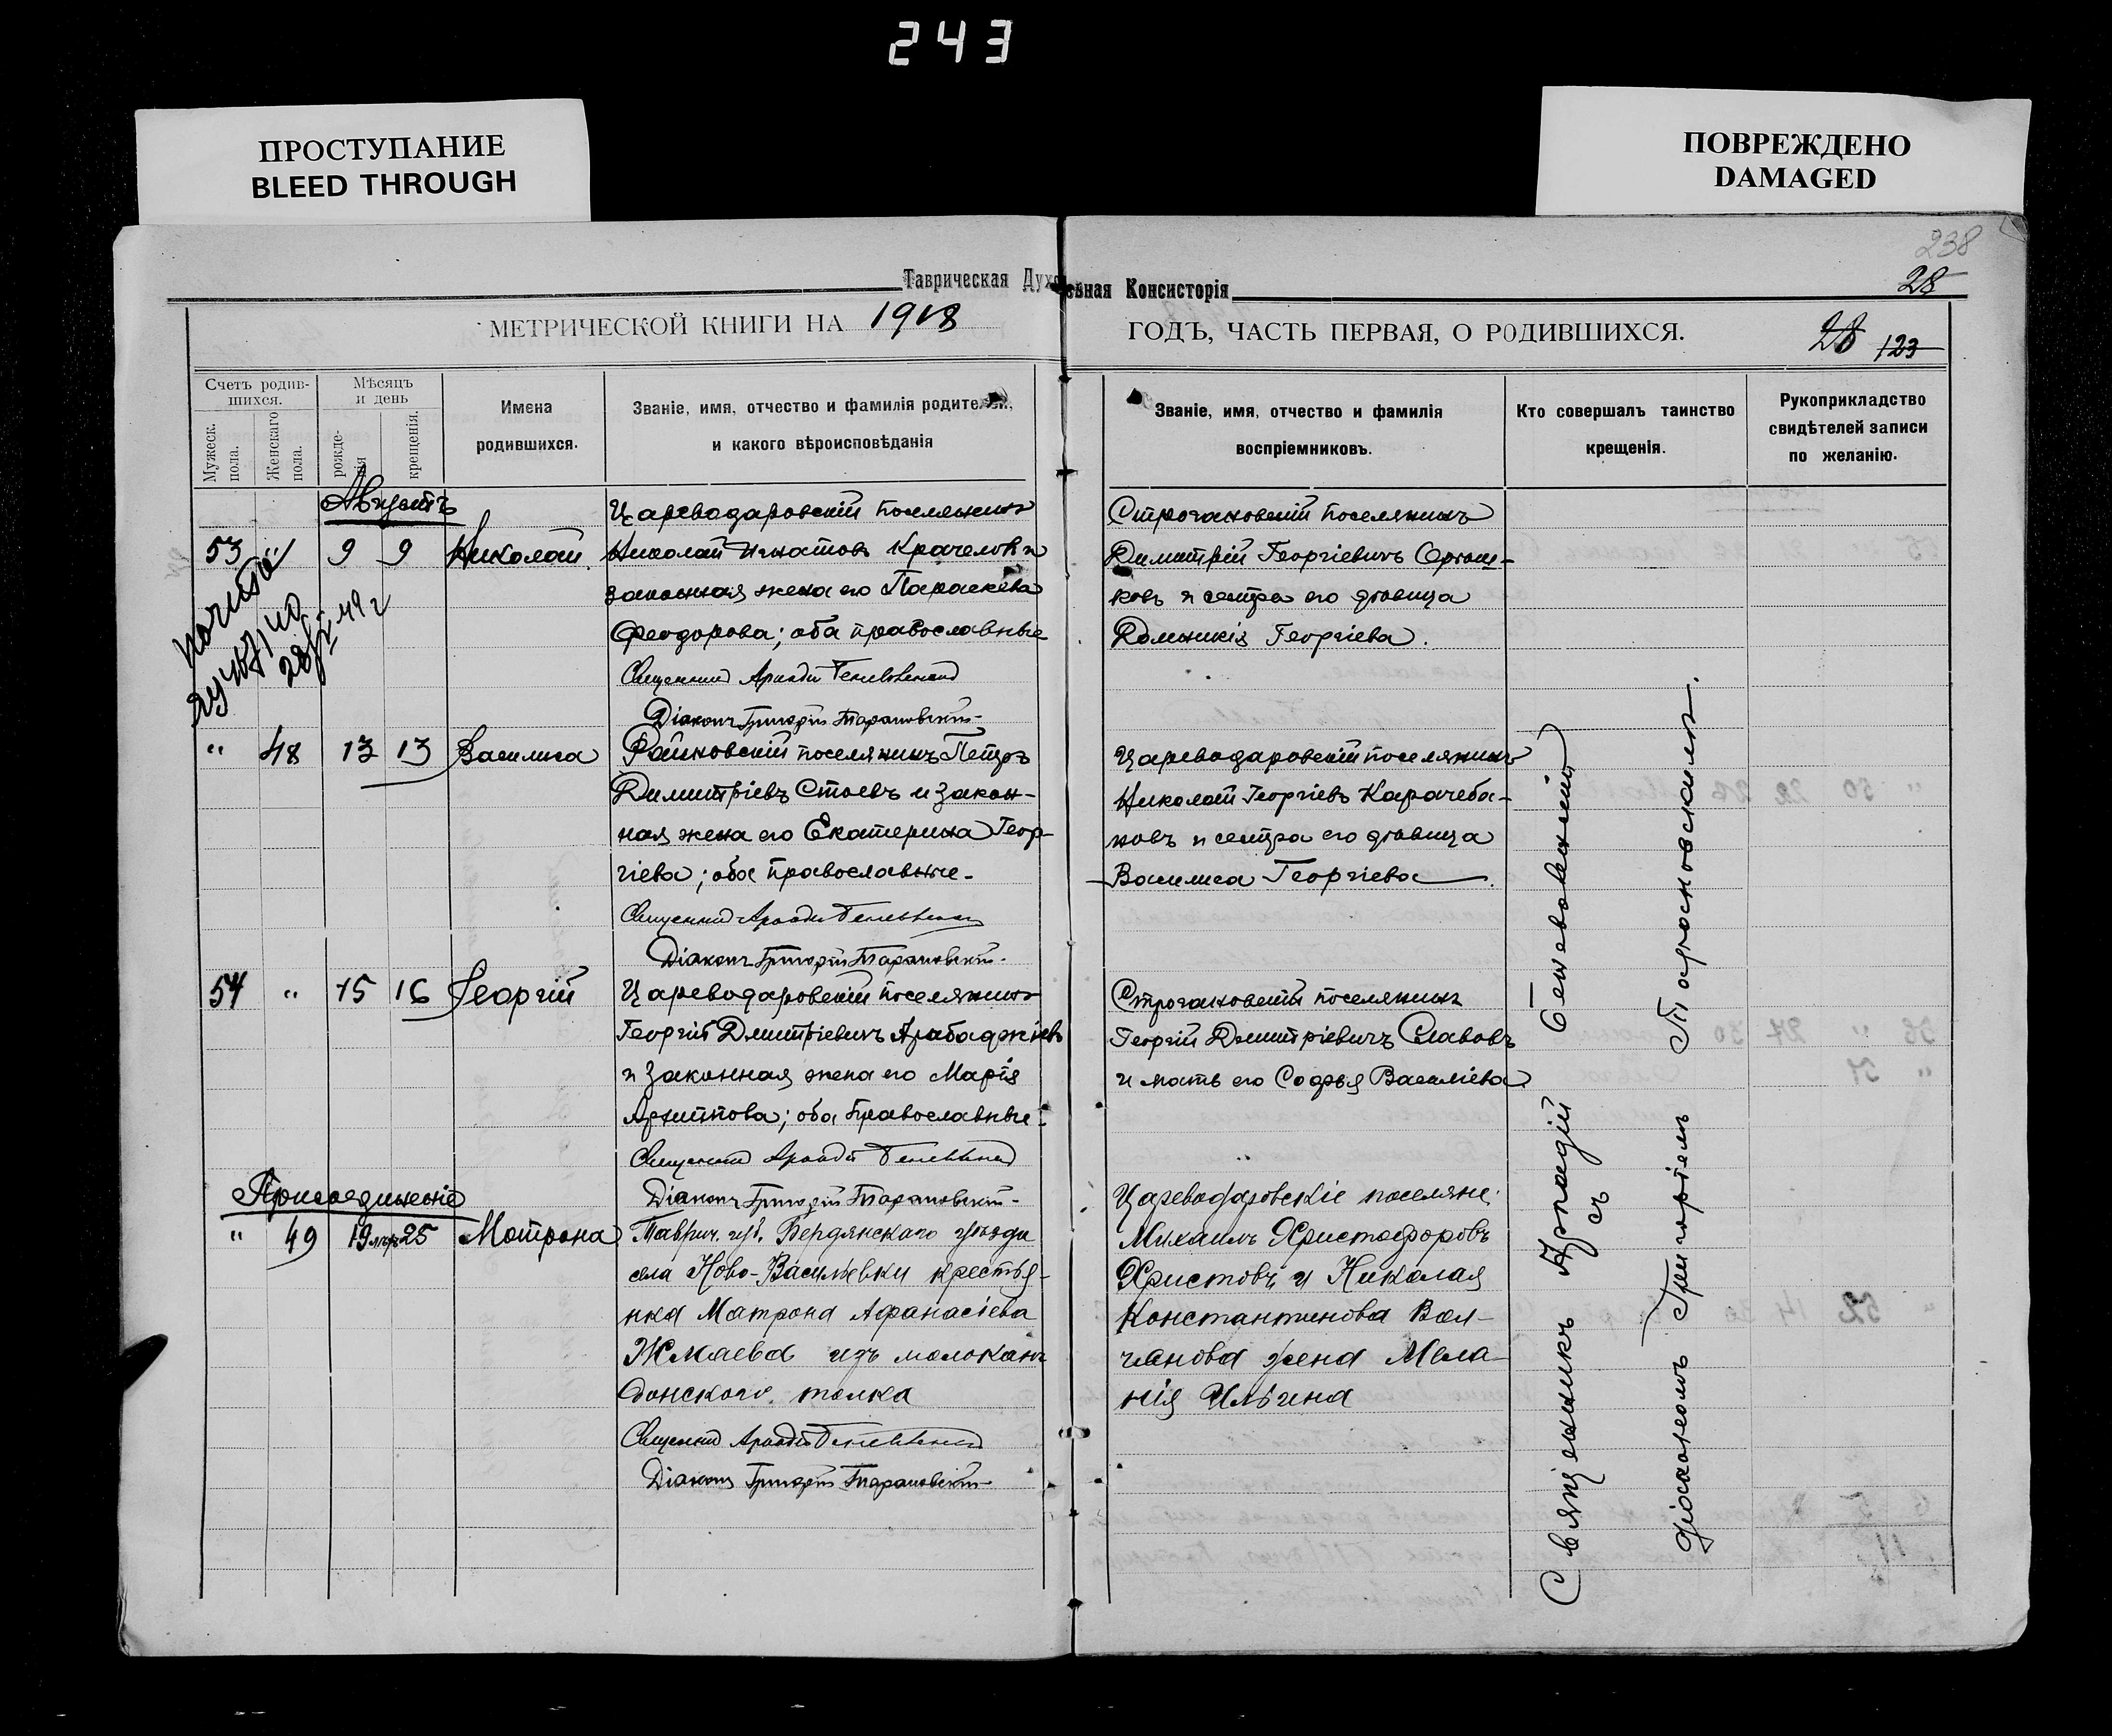 243
ПРОСТУПАНИЕ
BLEED THROUGH
ПОВРЕЖДЕНО
DAMAGED
238
28
Таврическая Духовная Консисторія
МЕТРИЧЕСКОЙ КНИГИ НА 1918
ГОДЪ, ЧАСТЬ ПЕРВАЯ, О РОДИВШИХСЯ.
28 123
Счетъ родив-
шихся.
Мужеск. пола.
Женскаго пола.
Мѣсяцъ
и день
рожде-
нія
крещенія.
Имена
родившихся.
Званіе, имя, отчество и фамилія родителей,
и какого вѣроисповѣданія
Званіе, имя, отчество и фамилія
воспріемниковъ.
Кто совершалъ таинство
крещенія.
Рукоприкладство
свидѣтелей записи
по желанію.
Августъ
53 9 9 Николай
Цареводаровскій поселянинъ
Николай Игнатовъ и
законная жена его Параскева
Феодорова; оба православные
Священникъ Аркадій
Діаконъ Григорій Тарановскій
Строгановскій поселянинъ
Димитрій Георгіевичъ
ковъ и сестра его дѣвица
Домникія Георгіева.
49 г
" 48 13 13 Василиса
Райновскій поселянинъ Петръ
Димитріевъ Стоевъ и закон-
ная жена его Екатерина Геор-
гіева; оба православные.
Священникъ Аркадій
Діаконъ Григорій Тарановскій
Цареводаровскій поселянинъ
Николай Георгіевъ Карачеба-
новъ и сестра его дѣвица
Василиса Георгіева.
54 " 15 16 Георгій
Цареводаровскій поселянинъ
Георгій Дмитріевичъ Арабаджіевъ
и законная жена его Марія
Архиппова; оба православные.
Священникъ Аркадій
Діаконъ Григорій Тарановскій
Строгановскій поселянинъ
Георгій Дмитріевичъ Славовъ
и мать его Софья Василіева
Присоединеніе
" 49 19 25 Матрона
Таврич. губ. Бердянскаго уѣзда
села Ново-Васильевки крестья-
нка Матрона Афанасіева
Жмаева изъ молоканъ
донского толка
Священникъ Аркадій
Діаконъ Григорій Тарановскій
Цареводаровскіе поселяне:
Михаилъ Христофоровъ
Христовъ и Николая
Константинова Вол-
чанова жена Мела-
нія Ильина
Священникъ Аркадій
съ
діакономъ Григоріемъ Тарановскимъ.